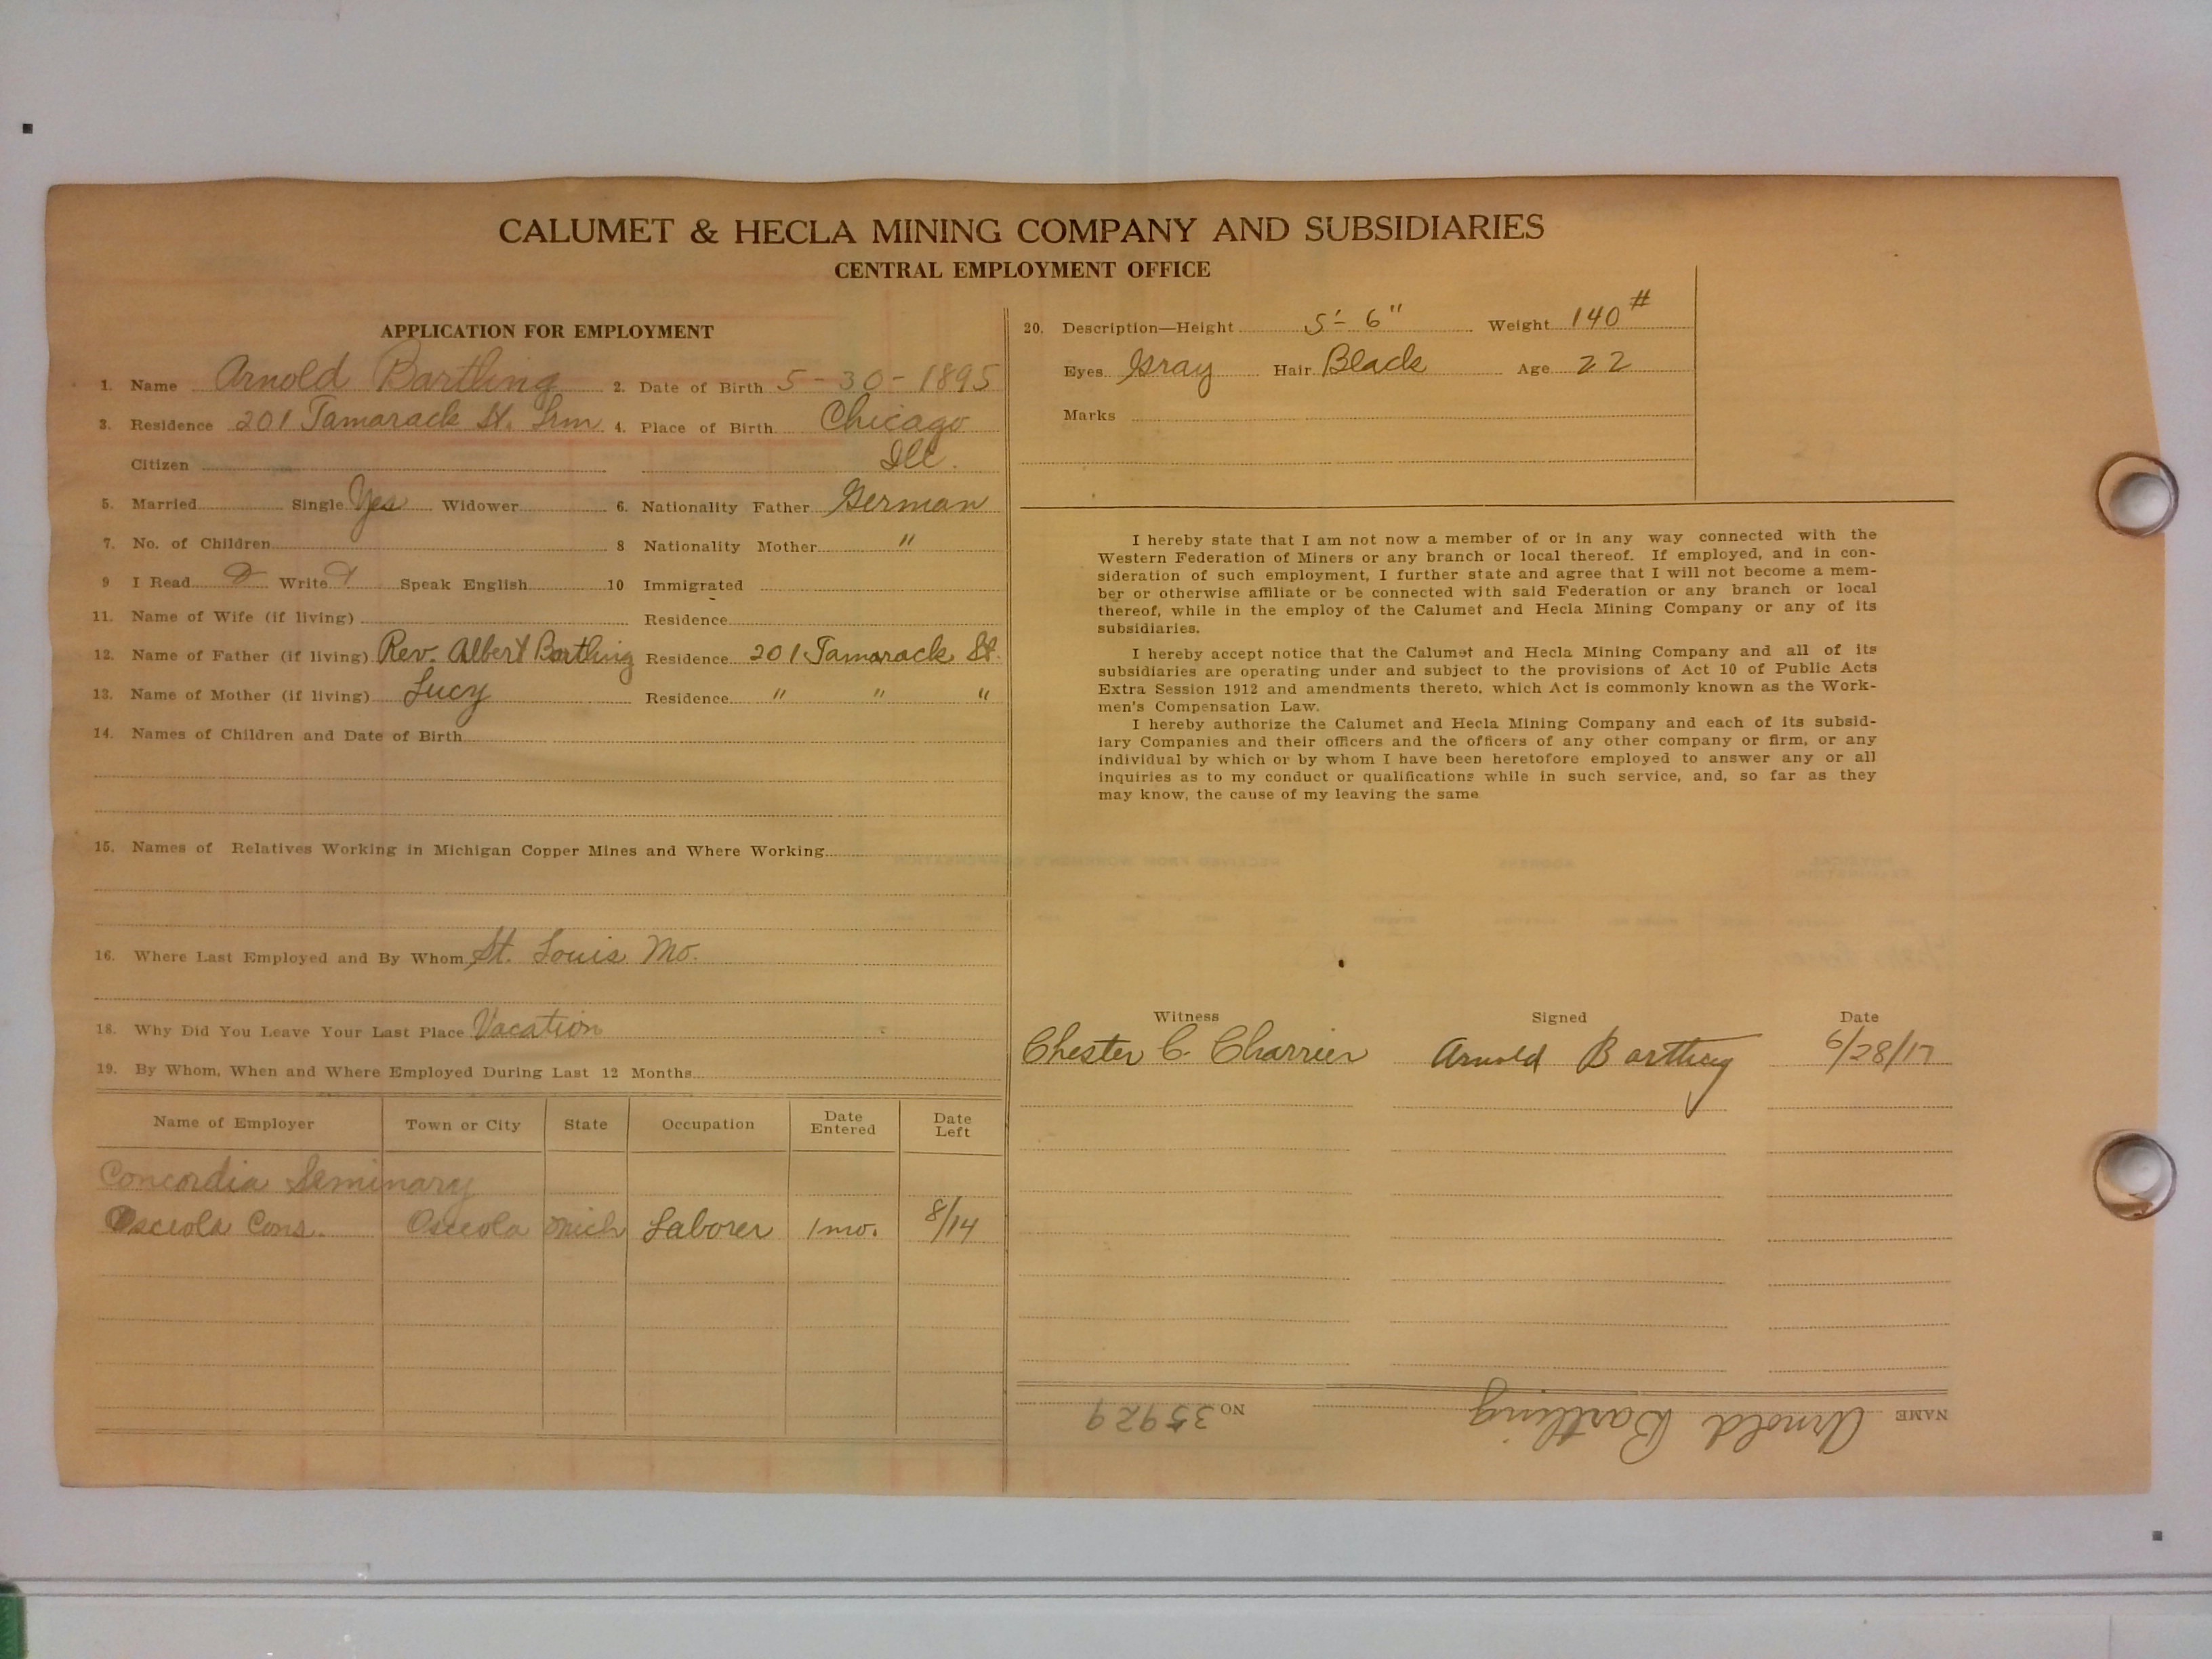 CALUMET & HECLA MINING COMPANY AND SUBSIDIARIES
CENTRAL EMPLOYMENT OFFICE
APPLICATION FOR EMPLOYMENT
1. Name Arnold Bartling 2. Date of Birth 5-30-1895
3. Residence 201 Tamarack St. Lrm 4. Place of Birth Chicago
Citizen Ill.
5. Married Single Yes Widower 6. Nationality Father German
7. No. of Children 8 Nationality Mother "
9 I Read Write Speak English 10 Immigrated
11. Name of Wife (if living) Residence
12. Name of Father (if living) Rev. Albert Bartling Residence 201 Tamarack St.
13. Name of Mother (if living) Lucy Residence " " "
14. Names of Children and Date of Birth
15. Names of Relatives Working in Michigan Copper Mines and Where Working
16. Where Last Employed and By Whom St. Louis Mo.
18. Why Did You Leave Your Last Place Vacation
19. By Whom, When and Where Employed During Last 12 Months
Name of Employer Town or City State Occupation Date Entered Date Left
Concordia Seminary
Osceola Cons. Osceola Mich Laborer 1 mo. 8/14
20. Description—Height 5'-6" Weight 140#
Eyes Gray Hair Black Age 22
Marks
I hereby state that I am not now a member of or in any way connected with the
Western Federation of Miners or any branch or local thereof. If employed, and in con-
sideration of such employment, I further state and agree that I will not become a mem-
ber or otherwise affiliate or be connected with said Federation or any branch or local
thereof, while in the employ of the Calumet and Hecla Mining Company or any of its
subsidiaries.
I hereby accept notice that the Calumet and Hecla Mining Company and all of its
subsidiaries are operating under and subject to the provisions of Act 10 of Public Acts
Extra Session 1912 and amendments thereto, which Act is commonly known as the Work-
men's Compensation Law.
I hereby authorize the Calumet and Hecla Mining Company and each of its subsid-
iary Companies and their officers and the officers of any other company or firm, or any
individual by which or by whom I have been heretofore employed to answer any or all
inquiries as to my conduct or qualifications while in such service, and, so far as they
may know, the cause of my leaving the same
Witness Signed Date
Chester C. Charrier Arnold Bartling 6/28/17
NAME Arnold Bartling NO 35929